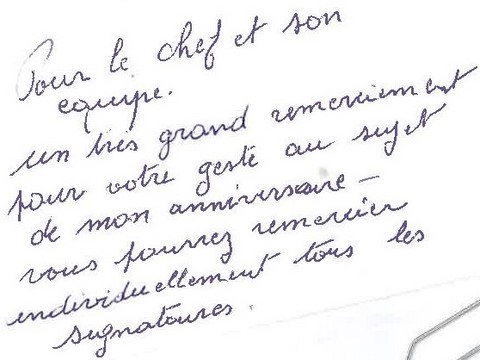 Pour le chef et son
equipe.
un très grand remerciement
pour votre geste au sujet
de mon anniversaire -
vous pourrez remercier
individuellement tous les
signatures.